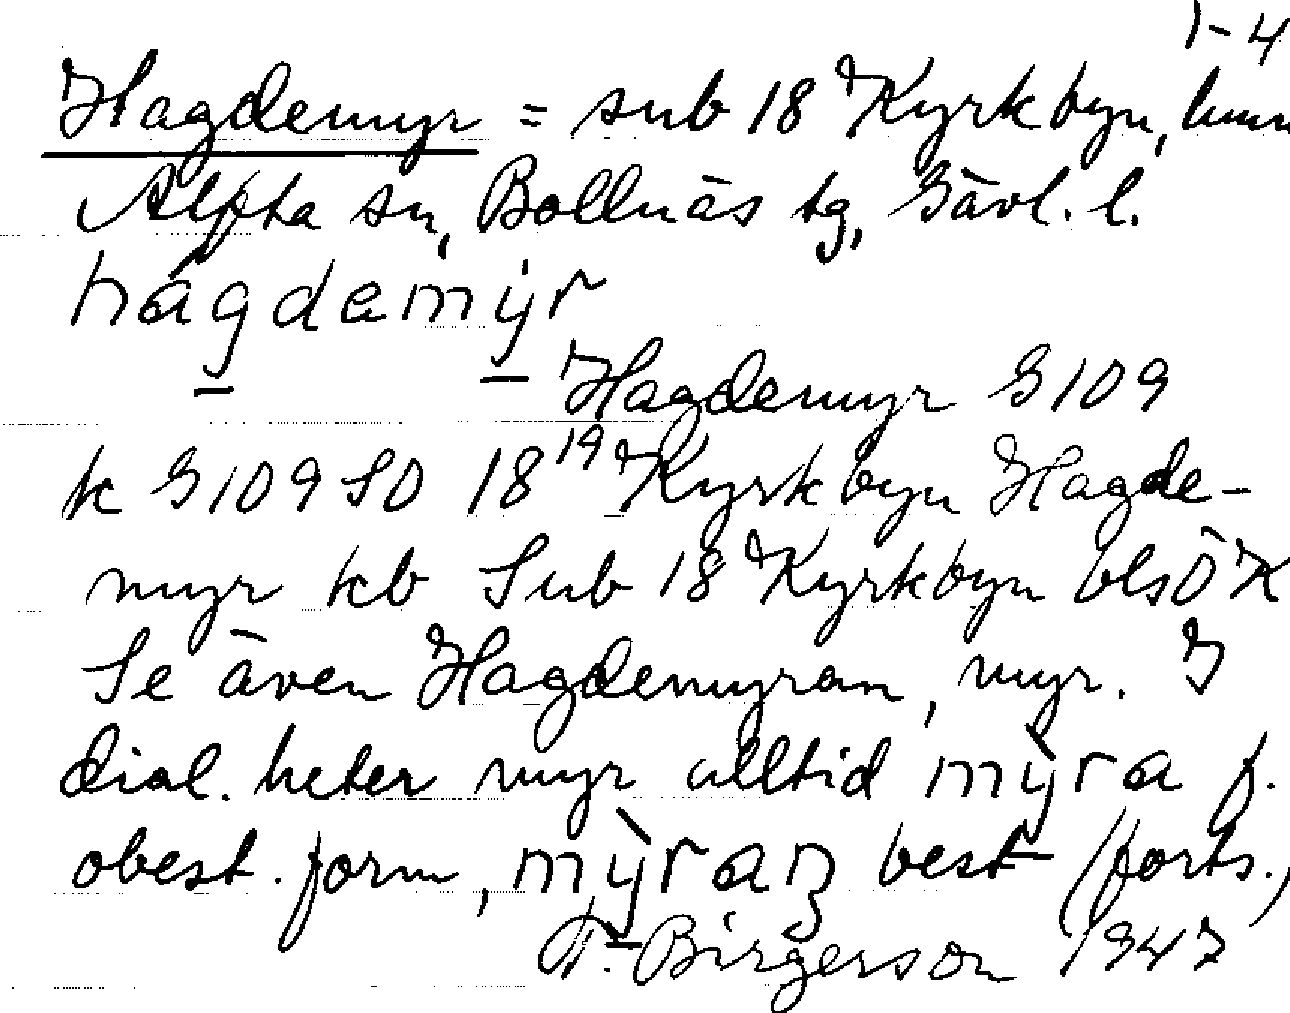 1-4
Hagdemyr = sub 18 Kyrkbyn,
Alfta sn, Bollnäs tg, Gävl. l.
hágdemy̍r
Hagdemyr G109
k G109 SO 18¹⁹ Kyrkbyn Hagde-
myr kb Sub 18 Kyrkbyn blsÖK
Se även Hagdemyran, myr. I
dial. heter myr alltid mỳra f.
obest. form, mỳraɳ best (forts.)
F. Birgerson 1947